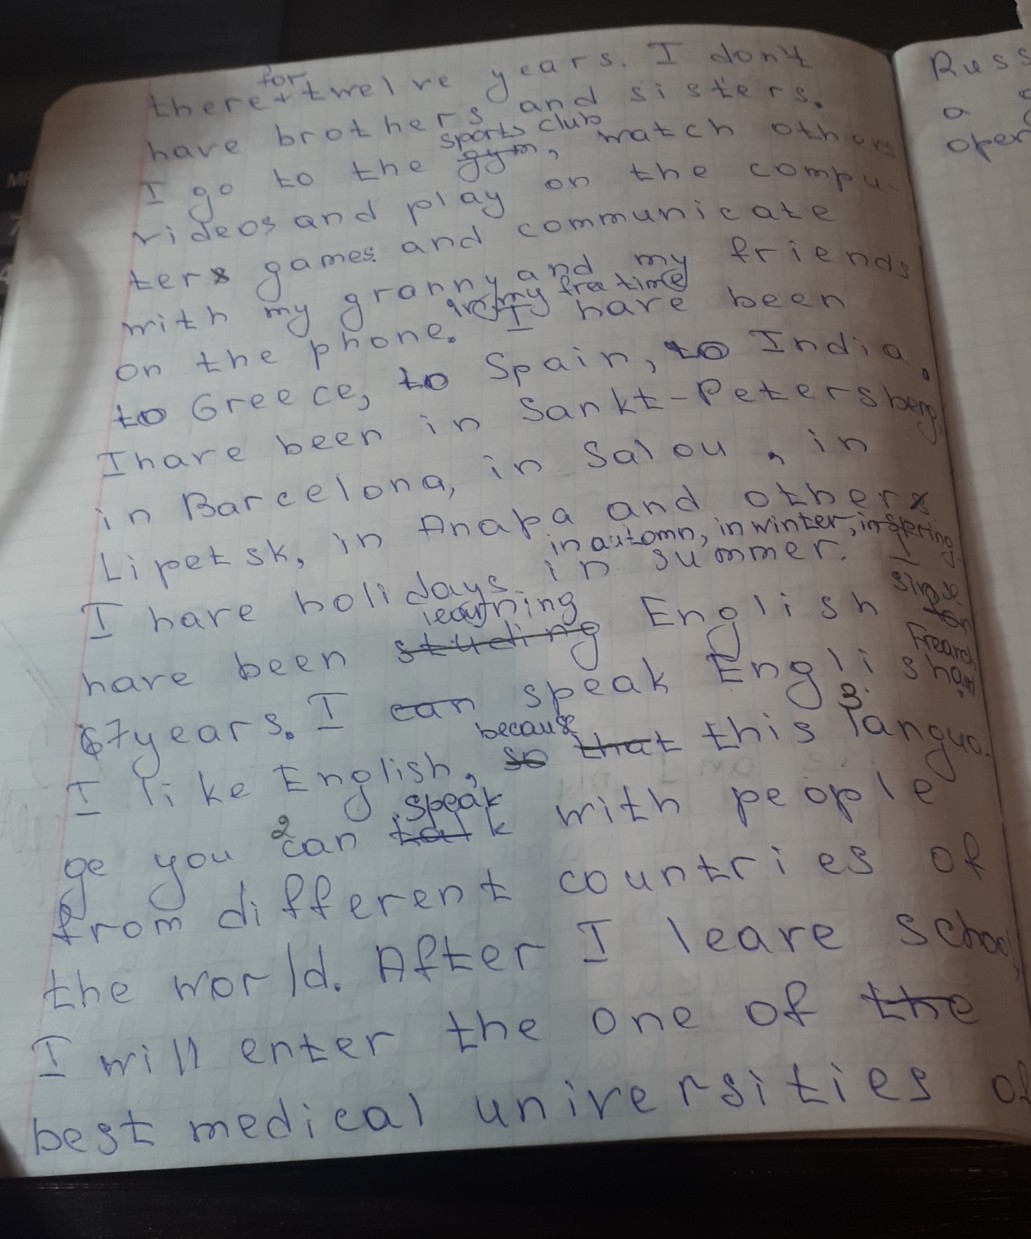 there for twelve years. I don't
have brothers and sisters.
I go to the sports club, watch others
videos and play on the compu-
ters games and communicate
with my granny and my friends
on the phone. in my free time I have been
to Greece, to Spain, to India.
I have been in Sankt-Petersberg,
in Barcelona, in Salou, in
Lipetsk, in Anapa and others
I have holidays in automn, in winter, in spring, in summer.
have been studing learning English for
67years. I can speak English
I like English, so because that this langua.
ge you can talk speak with people
from different countries of
the world. After I leave school
I will enter the one of the
best medical universities of
Russ
a
oper